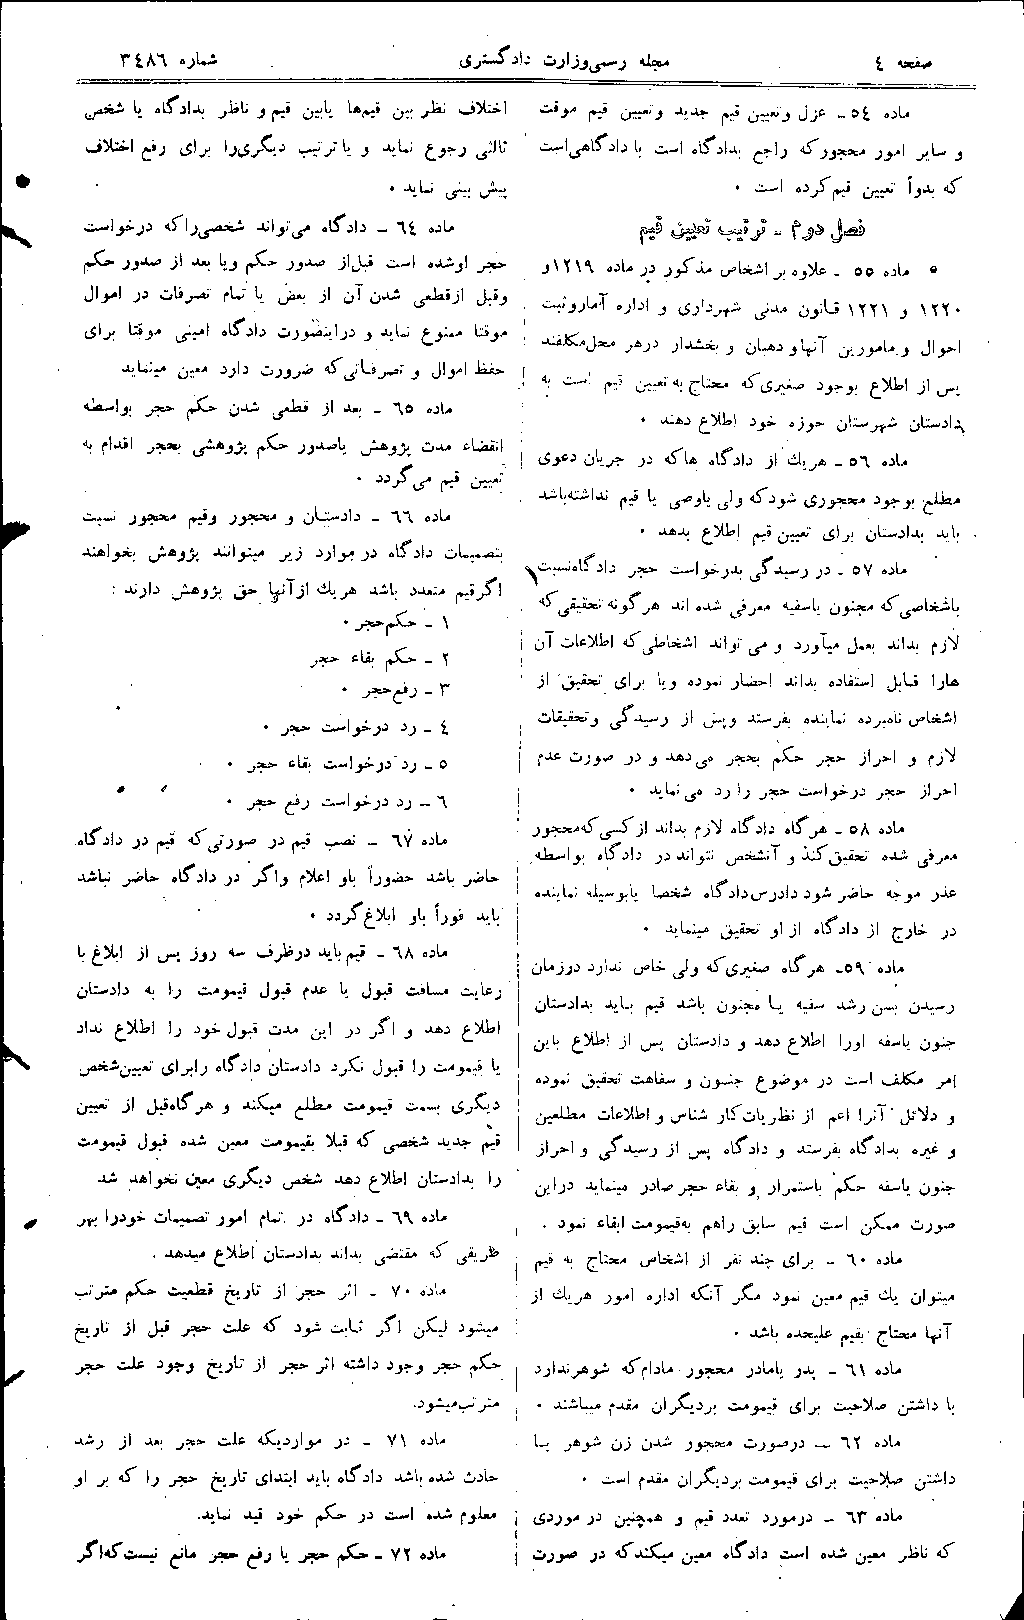 صفحه ٤
مجله رسمی وزارت دادگستری
شماره ٣٤٨٦
ماده ٥٤ ـ عزل وتعیین قیم جدید وتعیین قیم موقت
و سایر امور محجورکه راجع بدادگاه است با دادگاهی‌است
که بدواً تعیین قیم‌کرده است ٠
فصل دوم ـ ترتیب تعیین قیم
ماده ٥٥ ـ علاوه بر اشخاص مذکور در ماده ١٢١٩و
١٢٢٠ و ١٢٢١ قانون مدنی شهرداری و اداره آماروثبت
احوال و مامورین آنهاو دهبان و بخشدار درهر محل‌مکلفند
پس از اطلاع بوجود صغیری‌که محتاج به تعیین قیم است به
دادستان شهرستان حوزه خود اطلاع دهند ٠
ماده ٥٦ ـ هریك از دادگاه هاکه در جریان دعوی
مطلع بوجود محجوری شودکه ولی یاوصی یا قیم نداشته‌باشد
باید بدادستان برای تعیین قیم اطلاع بدهد ٠
ماده ٥٧ ـ در رسیدگی بدرخواست حجر دادگاه‌نسبت
باشخاصی‌که مجنون یاسفیه معرفی شده اند هرگونه تحقیقی‌که
لازم بداند بعمل میآورد و می تواند اشخاطی‌که اطلاعات آن
هارا قابل استفاده بداند احضار نموده ویا برای تحقیق از
اشخاص نامبرده نماینده بفرستد وپس از رسیدگی وتحقیقات
لازم و احراز حجر حکم بحجر می‌دهد و در صورت عدم
احراز حجر درخواست حجر را رد می‌نماید ٠
ماده ٥٨ ـ هرگاه دادگاه لازم بداند ازکسی که‌محجور
معرفی شده تحقیق‌کند و آنشخص نتواند در دادگاه بواسطه
عذر موجه حاضر شود دادرس‌دادگاه شخصا یابوسیله نماینده
در خارج از دادگاه از او تحقیق مینماید ٠
ماده ٥٩ـ هرگاه صغیری‌که ولی خاص ندارد درزمان
رسیدن بسن رشد سفیه یا مجنون باشد قیم باید بدادستان
جنون یاسفه اورا اطلاع دهد و دادستان پس از اطلاع باین
امر مکلف است در موضوع جنون و سفاهت تحقیق نموده
و دلائل آنرا اعم از نظریات‌کار شناس و اطلاعات مطلعین
و غیره بدادگاه بفرستد و دادگاه پس از رسیدگی و احراز
جنون یاسفه حکم باستمرار و بقاء حجر صادر مینماید دراین
صورت ممکن است قیم سابق راهم به‌قیومت ابقاء نمود .
ماده ٦٠ ـ برای چند نفر از اشخاص محتاج به قیم
میتوان یك قیم معین نمود مگر آنکه اداره امور هریك از
آنها محتاج بقیم علیحده باشد ٠
ماده ٦١ ـ پدر یامادر محجور مادام‌که شوهرندارد
با داشتن صلاحیت برای قیمومت بردیگران مقدم میباشند ٠
ماده ٦٢ ـ درصورت محجور شدن زن شوهر با
داشتن صلاحیت برای قیمومت بردیگران مقدم است ٠
ماده ٦٣ ـ درمورد تعدد قیم و همچنین در موردی
که ناظر معین شده است دادگاه معین میکندکه در صورت
اختلاف نظر بین قیم‌ها یابین قیم و ناظر بدادگاه یا شخص
ثالثی رجوع نماید و یا ترتیب دیگری‌را برای رفع اختلاف
پیش بینی نماید ٠
ماده ٦٤ ـ دادگاه می‌تواند شخصی‌راکه درخواست
حجر اوشده است قبل‌از صدور حکم ویا بعد از صدور حکم
وقبل ازقطعی شدن آن از بعض یا تمام تصرفات در اموال
موقتا ممنوع نماید و دراینصورت دادگاه امینی موقتا برای
حفظ اموال و تصرفاتی‌که ضرورت دارد معین مینماید
ماده ٦٥ ـ بعد از قطعی شدن حکم حجر بواسطه
انقضاء مدت پژوهش یاصدور حکم پژوهشی بحجر اقدام به
تعیین قیم می‌گردد ٠
ماده ٦٦ ـ دادستان و محجور وقیم محجور نسبت
بتصمیمات دادگاه در موارد زیر میتوانند پژوهش بخواهند
اگرقیم متعدد باشد هریك ازآنها حق پژوهش دارند :
١ ـ حکم‌حجر ٠
٢ ـ حکم بقاء حجر
٣ ـ رفع‌حجر ٠
٤ ـ رد درخواست حجر ٠
٥ ـ رد درخواست بقاء حجر ٠
٦ ـ رد درخواست رفع حجر ٠
ماده ٦٧ ـ نصب قیم در صورتی‌که قیم در دادگاه
حاضر باشد حضوراً باو اعلام واگر در دادگاه حاضر نباشد
باید فوراً باو ابلاغ‌گردد ٠
ماده ٦٨ ـ قیم‌باید درظرف سه روز پس از ابلاغ با
رعایت مسافت قبول یا عدم قبول قیمومت را به دادستان
اطلاع دهد و اگر در این مدت قبول خود را اطلاع نداد
یا قیمومت را قبول نکرد دادستان دادگاه رابرای تعیین‌شخص
دیگری بسمت قیمومت مطلع میکند و هرگاه‌قبل از تعیین
قیم جدید شخصی که قبلا بقیمومت معین شده قبول قیمومت
را بدادستان اطلاع دهد شخص دیگری معین نخواهد شد
ماده ٦٩ ـ دادگاه در تمام امور تصمیمات خودرا بهر
طریقی که مقتضی بداند بدادستان اطلاع میدهد .
ماده ٧٠ ـ اثر حجر از تاریخ قطعیت حکم مترتب
میشود لیکن اگر ثابت شود که علت حجر قبل از تاریخ
حکم حجر وجود داشته اثر حجر از تاریخ وجود علت حجر
مترتب‌میشود.
ماده ٧١ ـ در مواردیکه علت حجر بعد از رشد
حادث شده باشد دادگاه باید ابتدای تاریخ حجر را که بر او
معلوم شده است در حکم خود قید نماید.
ماده ٧٢ ـ حکم حجر یا رفع حجر مانع نیست‌که‌اگر